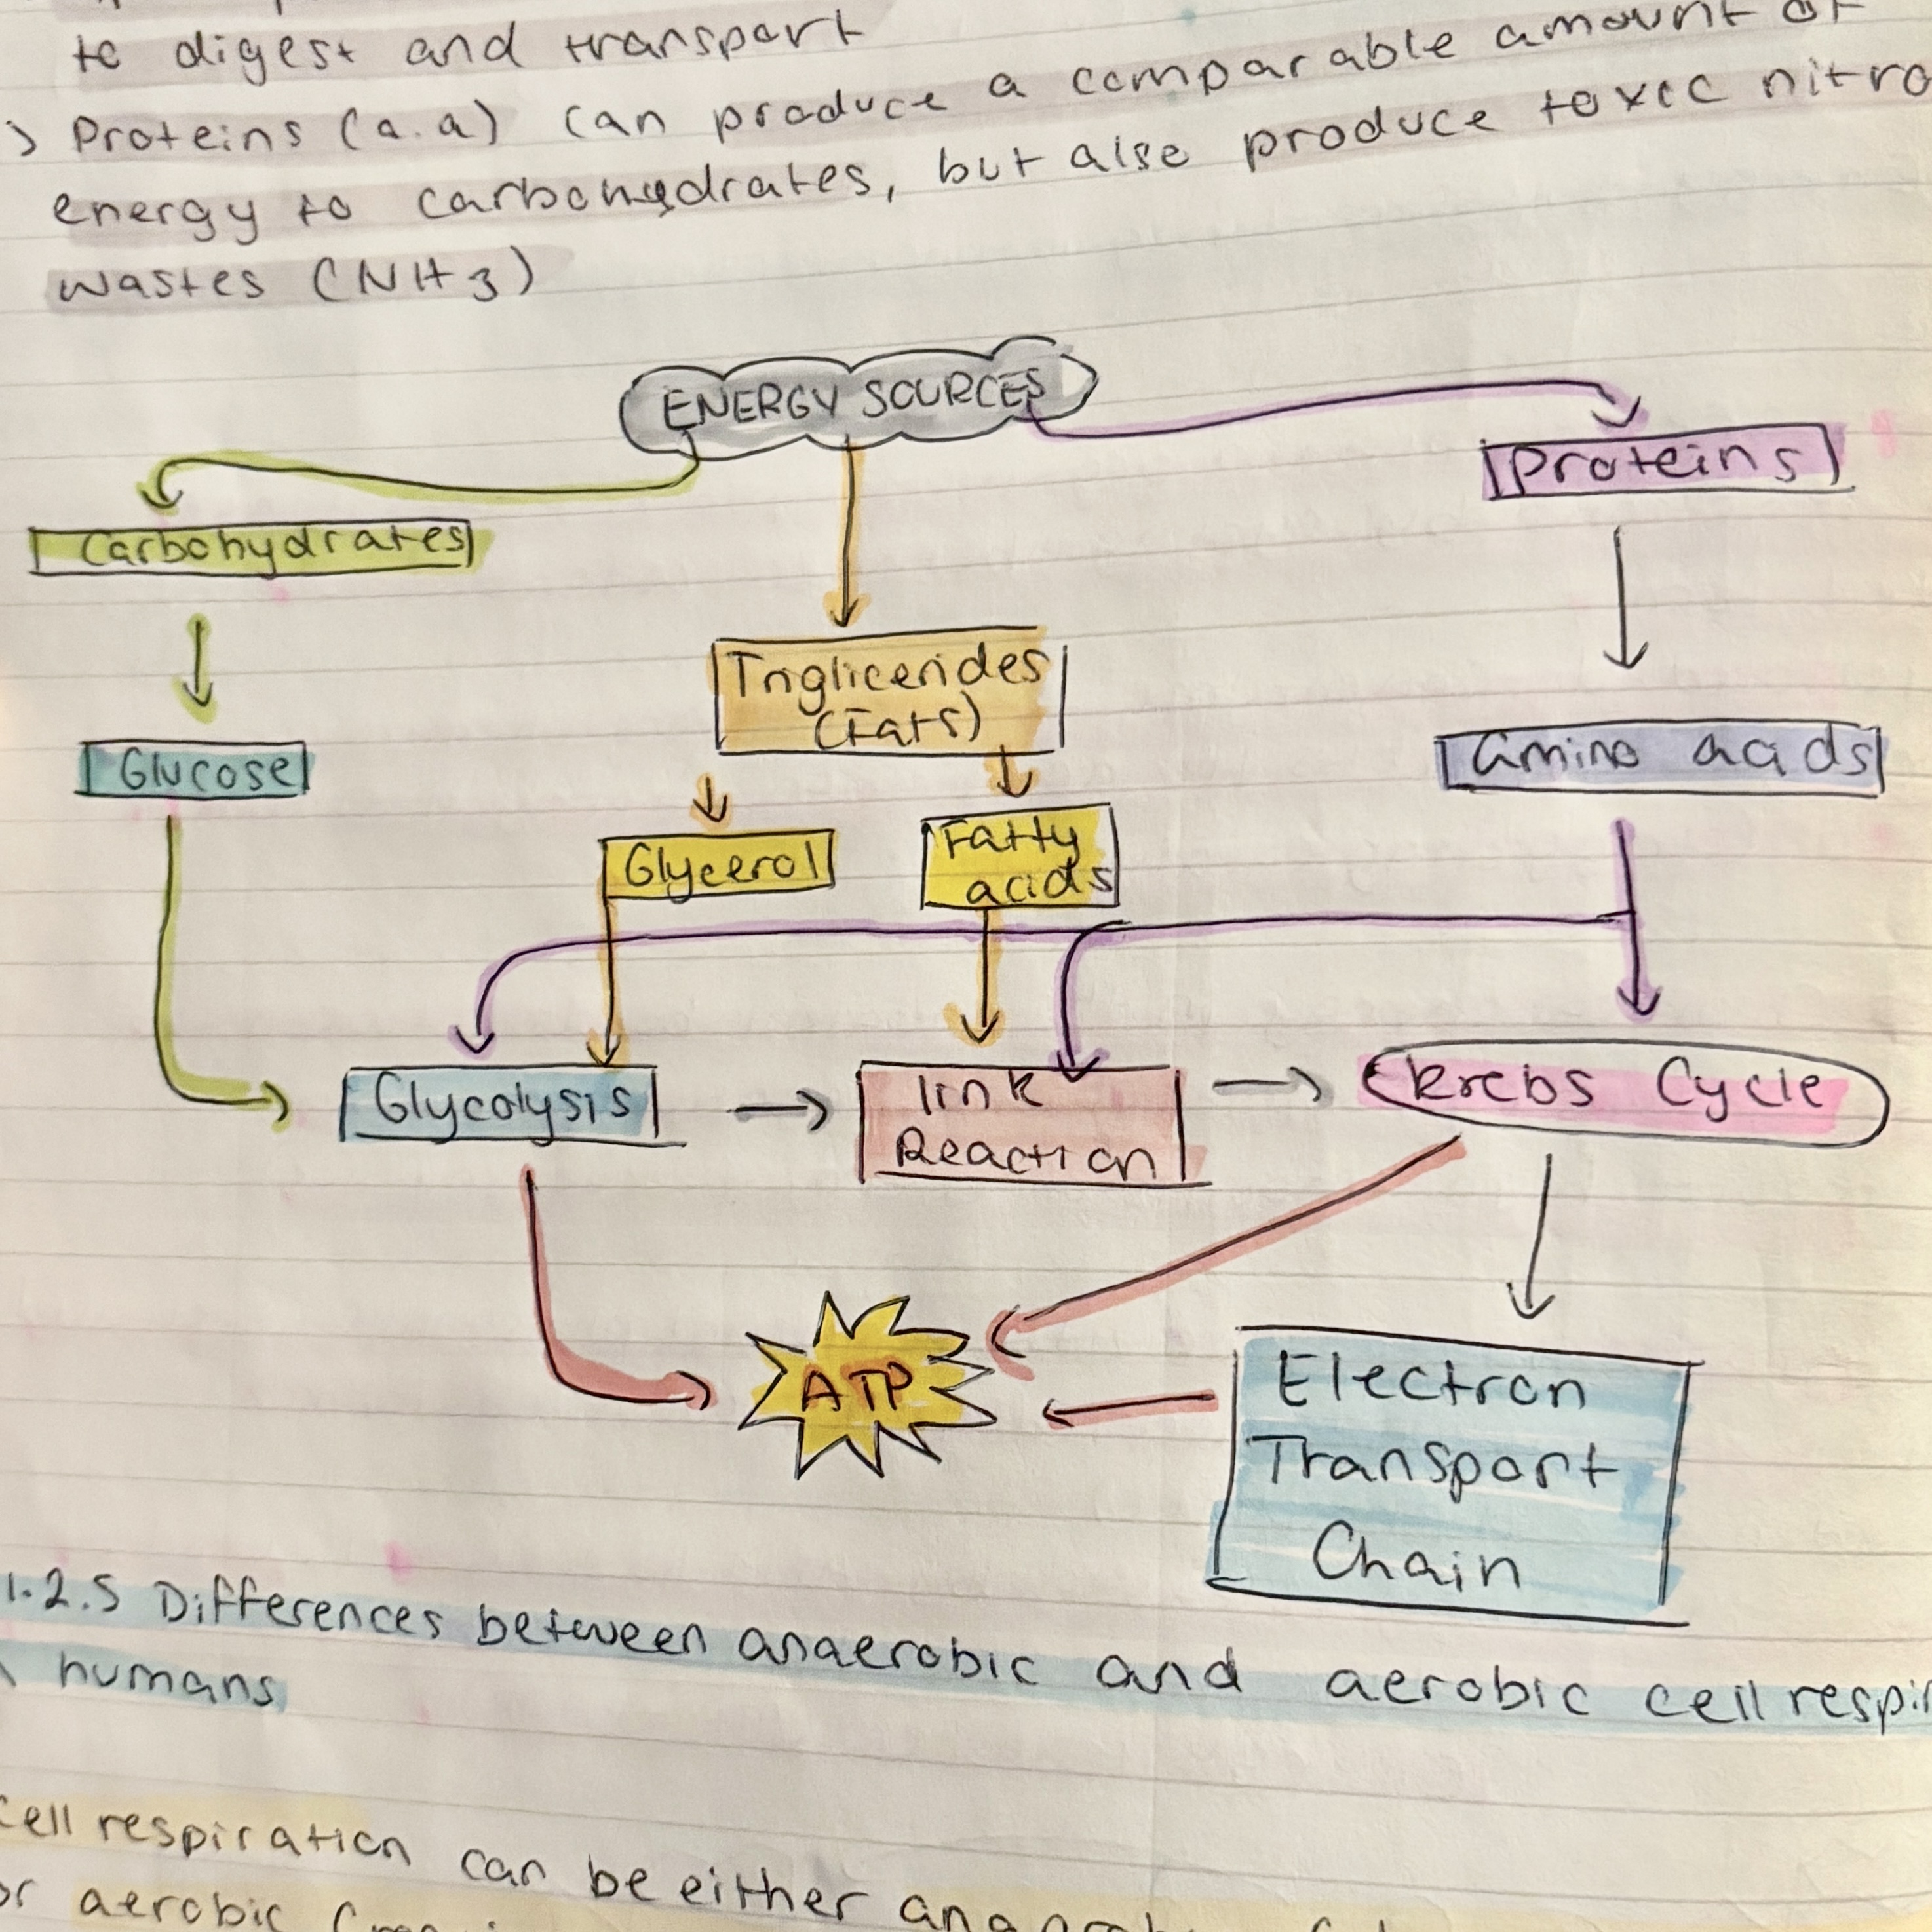 to digest and transport
> Proteins (a.a) can produce a comparable amount of
energy to carbohydrates, but also produce toxic nitro
wastes (NH3)
ENERGY SOURCES
Proteins
Carbohydrates
Triglicerides
(Fats)
Glucose
Amino acids
Glycerol
Fatty
acids
Glycolysis
link
Reaction
Krebs Cycle
ATP
Electron
Transport
Chain
1.2.5 Differences between anaerobic and aerobic cell respir
humans
Cell respiration can be either
or aerobic